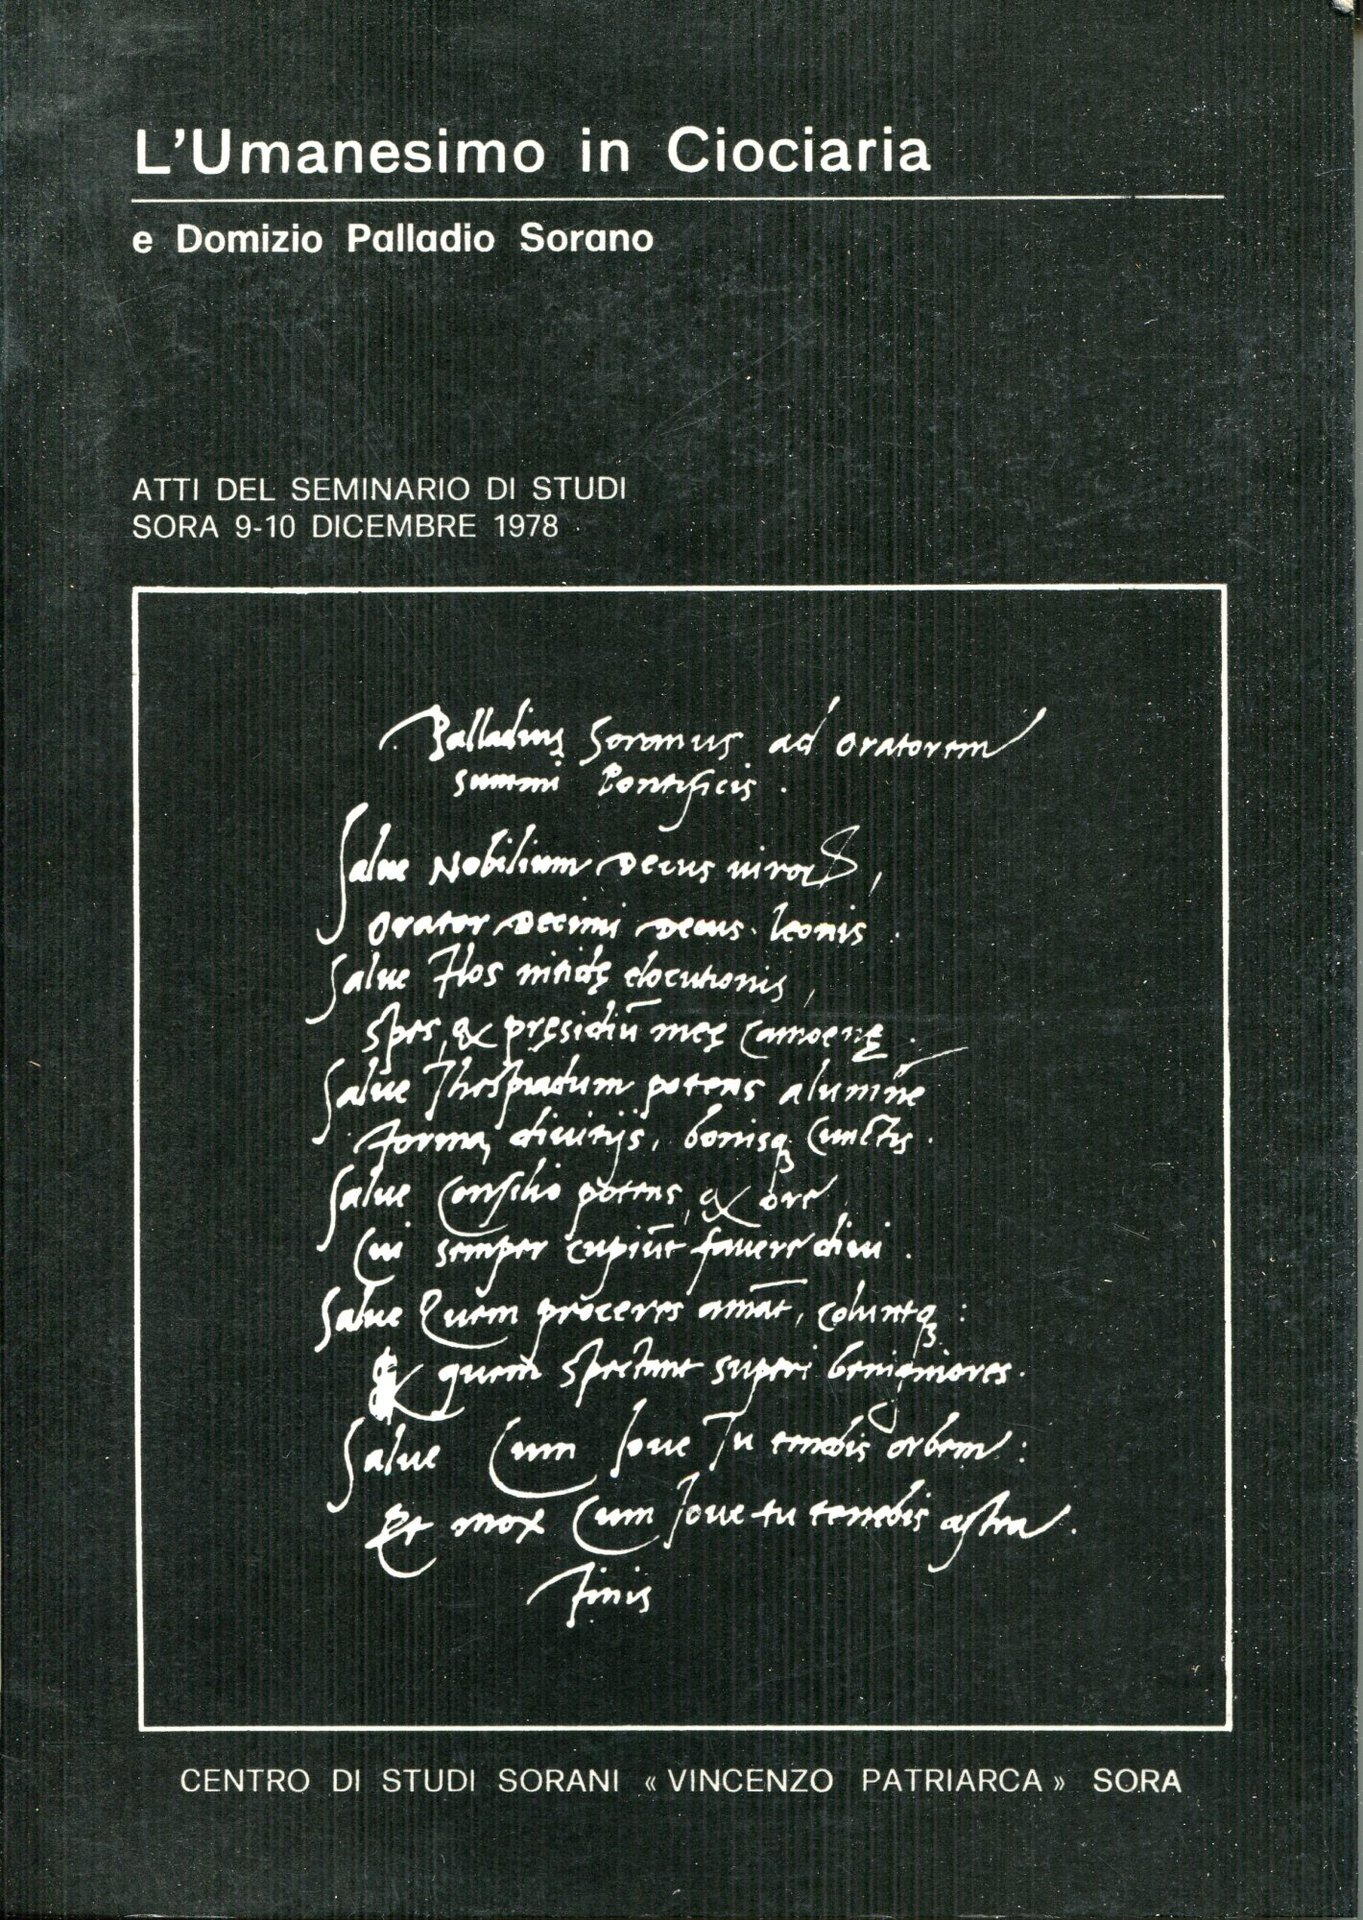 L'Umanesimo in Ciociaria
e Domizio Palladio Sorano
ATTI DEL SEMINARIO DI STUDI
SORA 9-10 DICEMBRE 1978
Palladius Soranus ad oratorem
summi Pontificis .
Salue Nobilium Decus uiroꝝ,
orator Decimi Decus Leonis .
Salue Flos nitidę elocutionis,
spes, & pręsidiū meę Camoenę .
Salue Thespiadum potens alumne
Forma, diuitijs, bonisqꝫ Cunctis .
Salue Consilio potens, & ore
Cui semper cupiūt fauere diui .
Salue Quem proceres amāt, coluntqꝫ :
& quem spectant superi benigniores .
Salue Cum Ioue Tu tenebis orbem :
Et mox Cum Ioue tu tenebis astra .
Finis
CENTRO DI STUDI SORANI « VINCENZO PATRIARCA » SORA